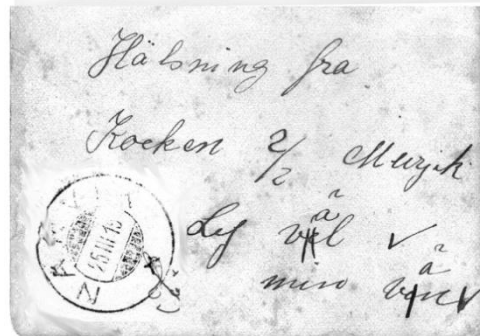 Hälsning fra
Kocken 2/2 Musik
Lef väl
min vän
25 III 15